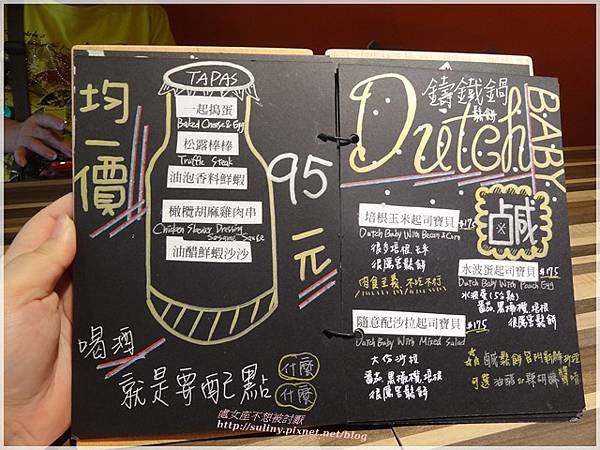 均一價
95元
TAPAS
一起搗蛋
Baked Cheese & Egg
松露棒棒
Truffle Steak
油泡香料鮮蝦
橄欖胡麻雞肉串
Chicken Skewer Dressing
Sesame Sauce
油醋鮮蝦沙沙
喝酒
就是要配點
什麼
什麼
鑄鐵鍋
鬆餅
Dutch
BABY
鹹
培根玉米起司寶貝 $175
Dutch Baby With Bacon & Corn
很多培根玉米
很厲害鬆餅
肉食主義, 不吃不行
水波蛋起司寶貝 $175
Dutch Baby With Poach Egg
水波蛋(5分熟)
番茄 黑橄欖 培根
很厲害鬆餅
隨意配沙拉起司寶貝 $175
Dutch Baby With Mixed Salad
大份沙拉
番茄 黑橄欖 培根
很厲害鬆餅
鹹鬆餅
可選 油醋 or
處女座不想被討厭
http://suliny.pixnet.net/blog